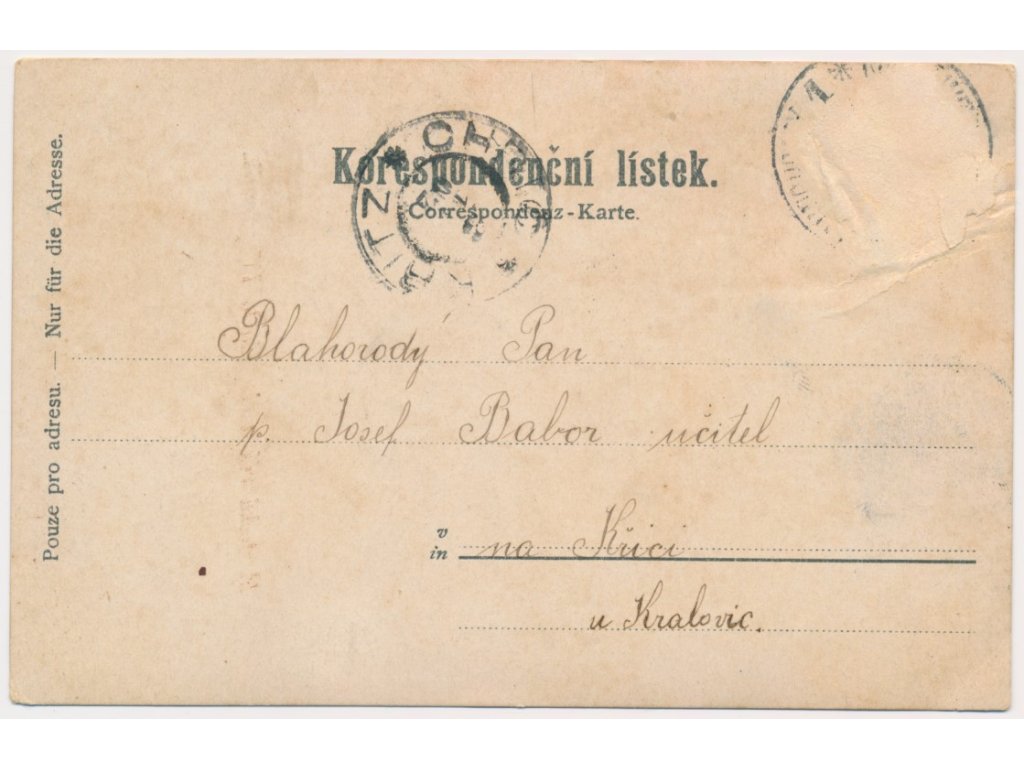 Korespondenční lístek.
Correspondenz-Karte.
Pouze pro adresu. — Nur für die Adresse.
Blahorodý Pan
p. Josef Babor učitel
v
in
na Křici
u Kralovic.